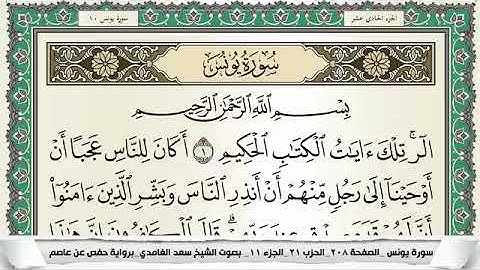 سورة يونس ١٠
الجزء الحادي عشر
سُورَةُ يُونُسَ
بِسْمِ اللَّهِ الرَّحْمَٰنِ الرَّحِيمِ
الٓر ۚ تِلْكَ ءَايَٰتُ الْكِتَٰبِ الْحَكِيمِ ١ أَكَانَ لِلنَّاسِ عَجَبًا أَنْ
أَوْحَيْنَا إِلَىٰ رَجُلٍ مِّنْهُمْ أَنْ أَنذِرِ النَّاسَ وَبَشِّرِ الَّذِينَ ءَامَنُوٓا
سورة يونس_ الصفحة ٢٠٨_ الحزب ٢١_ الجزء ١١_ بصوت الشيخ سعد الغامدي_برواية حفص عن عاصم